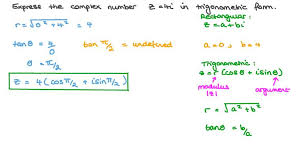 Express the complex number z=4i in trigonometric form.
r = √0²+4² = 4
tanθ = 4/0
tan π/2 = undefined
θ = π/2
z = 4(cos π/2 + i sin π/2)
Rectangular:
z = a+bi
a=0, b=4
Trigonometric:
z = r(cosθ + i sinθ)
modulus
|z|
argument
r = √a²+b²
tanθ = b/a